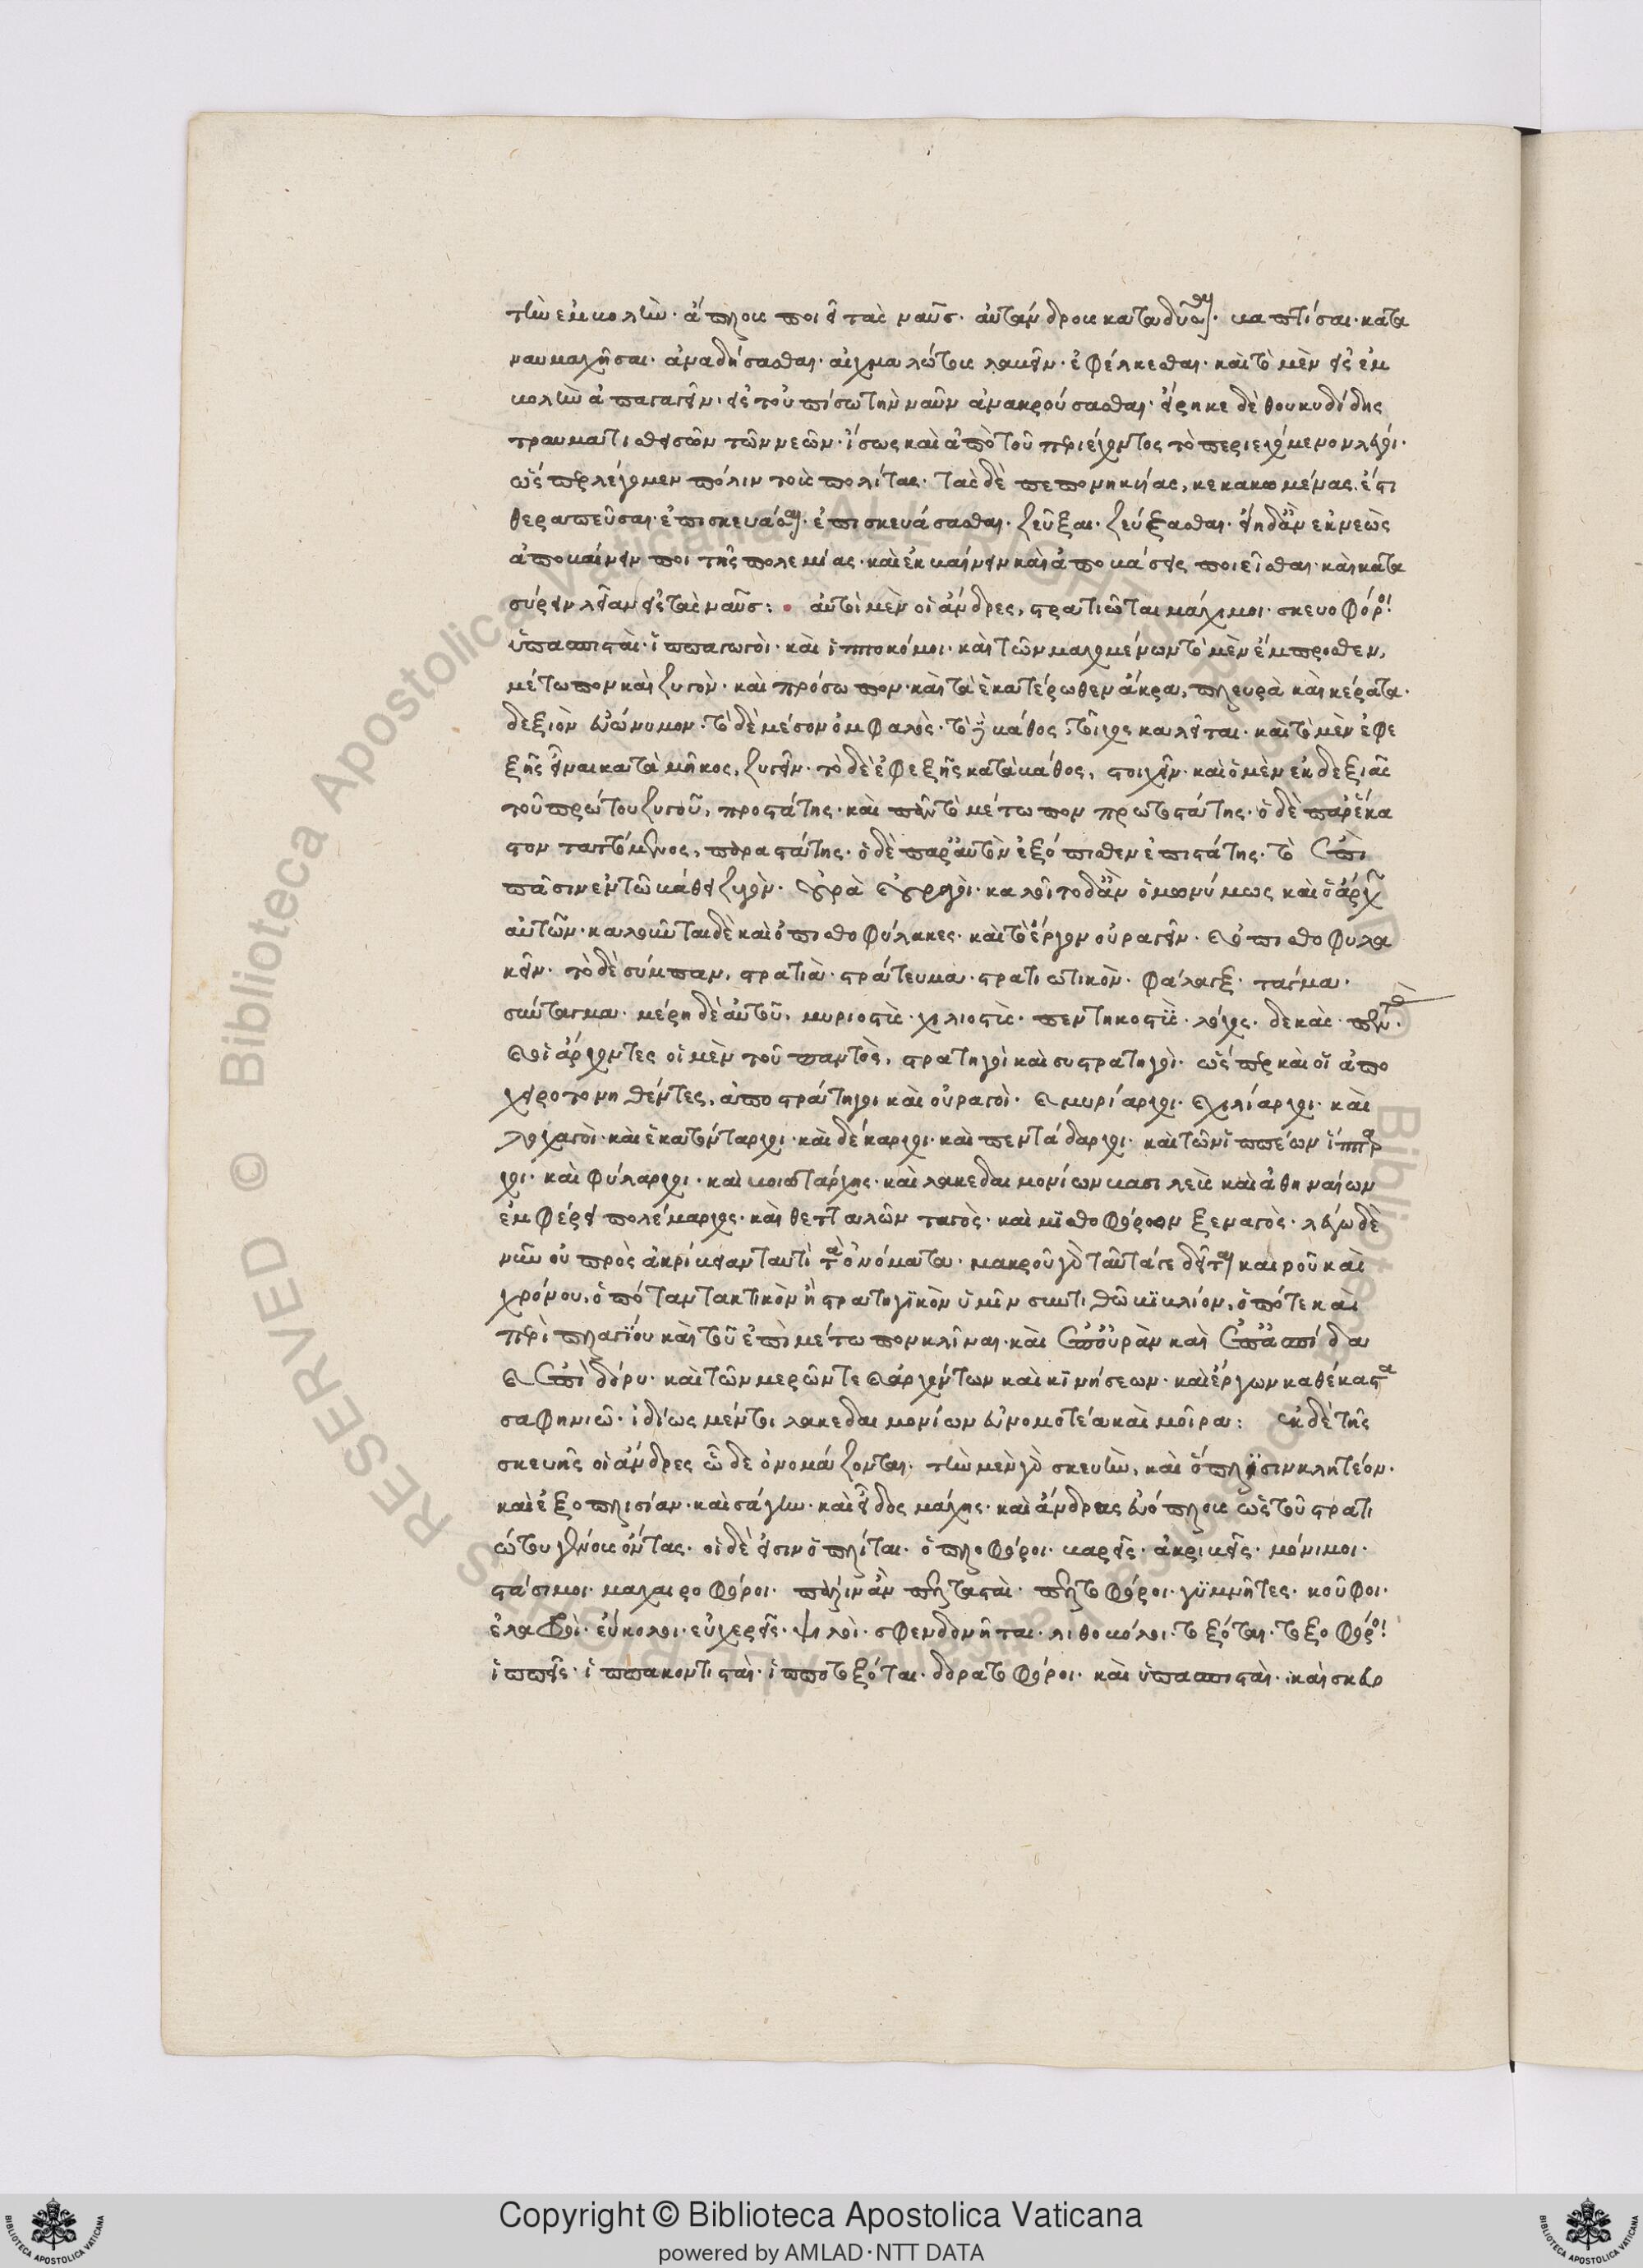 τὴν ἐμβολὴν· ἀπλους ποιεῖ τὰς ναῦς· αὐτάνδρους καταδῦσαι· βαπτίσαι· κατα
ναυμαχῆσαι· ἀναδήσασθαι· αἰχμαλώτους λαβεῖν· ἐφέλκεσθαι· καὶ τὸ μὲν εἰς ἐμ
βολὴν ἀπαγαγεῖν· εἰς τοὐπίσω τὴν ναῦν ἀνακρούσασθαι· εἴρηκε δὲ θουκυδίδης
τραυματισθεισῶν τῶν νεῶν· ἴσως καὶ ἀπὸ τοῦ περιέχοντος τὸ περιεχόμενον λέγει·
ὥσπερ λέγομεν πόλιν τοὺς πολίτας· τὰς δὲ πεπονηκυίας, κεκακωμένας· ἔστι
θεραπεῦσαι· ἐπισκευάσαι· ἐπισκευάσασθαι· ζεῦξαι· ζεύξασθαι· εἴη δ' ἂν ἐκ νεὼς
ἀποβαίνειν ποι τῆς πολεμίας· καὶ ἐκβαίνειν καὶ ἀποβάσεις ποιεῖσθαι· καὶ κατα
σύρειν λείαν εἰς τὰς ναῦς: • αὐτοὶ μὲν οἱ ἄνδρες, στρατιῶται μάχιμοι· σκευοφόροι
ὑπασπισταὶ· ἱππαγωγοὶ· καὶ ἱπποκόμοι· καὶ τῶν μαχομένων τὸ μὲν ἔμπροσθεν,
μέτωπον καὶ ζυγὸν· καὶ πρόσωπον· καὶ τὰ ἑκατέρωθεν ἄκρα, πλευρὰ καὶ κέρατα·
δεξιὸν εὐώνυμον· τὸ δὲ μέσον ὀμφαλὸς· τὸ δὲ βάθος, τοῖχος καλεῖται· καὶ τὸ μὲν ἐφε
ξῆς εἶναι κατὰ μῆκος, ζυγεῖν· τὸ δὲ ἐφεξῆς κατὰ βάθος, στοιχεῖν· καὶ ὁ μὲν ἐκ δεξιᾶς
τοῦ πρώτου ζυγοῦ, προστάτης· καὶ πᾶν τὸ μέτωπον πρωτοστάτης· ὁ δὲ παρ' ἕκα
στον ταττόμενος, παραστάτης· ὁ δὲ παρ' αὐτὸν ἐξόπισθεν ἐπιστάτης· τὸ ἐπὶ
πᾶσιν ἐν τῷ βάθει ζυγὸν· οὐρὰ οὐραγοὶ· καλοῖτο δ' ἂν ὁμωνύμως καὶ ὁ ἄρχων
αὐτῶν· καλοῦνται δὲ καὶ ὀπισθοφύλακες· καὶ τὸ ἔργον οὐραγεῖν· καὶ ὀπισθοφυλα
κεῖν· τὸ δὲ σύμπαν, στρατιὰ· στράτευμα· στρατιωτικὸν· φάλαγξ· τάγμα·
σύνταγμα· μέρη δὲ αὐτοῦ, μυριοστὺς· χιλιοστὺς· πεντηκοστὺς· λόχος· δεκὰς· πεντὰς·
καὶ οἱ ἄρχοντες οἱ μὲν τοῦ παντὸς, στρατηγοὶ καὶ συστρατηγοὶ· ὥσπερ καὶ οἱ ἀπο
χειροτονηθέντες, ἀποστράτηγοι καὶ οὐραγοὶ· καὶ μυρίαρχοι· καὶ χιλίαρχοι· καὶ
λοχαγοὶ· καὶ ἑκατόνταρχοι· καὶ δέκαρχοι· καὶ πεντάδαρχοι· καὶ τῶν ἱππέων ἵππαρ
χοι· καὶ φύλαρχοι· καὶ βοιωτάρχης· καὶ λακεδαιμονίων βασιλεὺς καὶ ἀθηναίων
ἐμφέρει πολέμαρχος· καὶ θετταλῶν ταγὸς· καὶ μισθοφόρων ξεναγὸς· λέγω δὲ
νῦν οὐ πρὸς ἀκρίβειαν ταυτὶ τὰ ὀνόματα· μακροῦ γὰρ ταῦτά γε δεῖται καιροῦ καὶ
χρόνου, ὁπόταν τακτικὸν ἢ στρατηγικὸν ὑμῖν συντιθῶ βιβλίον, ὁπότε καὶ
περὶ πλαγίου καὶ τοῦ ἐπὶ μέτωπον κλῖναι· καὶ ἐπ' οὐρὰν καὶ ἐπ' ἀσπίδα
καὶ ἐπὶ δόρυ· καὶ τῶν μερῶν τε καὶ ἀρχόντων καὶ κινήσεων· καὶ ἔργων καθέκαστα
σαφηνιῶ· ἰδίως μέντοι λακεδαιμονίων ἐνομοτέα καὶ μοῖρα: ἐκ δὲ τῆς
σκευῆς οἱ ἄνδρες ὧδε ὀνομάζονται· τὴν μὲν γὰρ σκευὴν, καὶ ὅπλισιν κλητέον·
καὶ ἐξοπλισίαν· καὶ σάγην· καὶ εἶδος μάχης· καὶ ἄνδρας εὐόπλους ὡς τοῦ στρατι
ώτου γένους ὄντας· οἱ δέ εἰσιν ὁπλῖται· ὁπλοφόροι· βαρεῖς· ἀκριβεῖς· μόνιμοι·
στάσιμοι· μαχαιροφόροι· πάλιν ἂν πελτασταὶ· πελτοφόροι· γυμνῆτες· κοῦφοι·
ἐλαφροὶ· εὔκολοι· εὐχερεῖς· ψιλοὶ· σφενδονῆται· λιθοβόλοι· τοξόται· τοξοφόροι
ἱππεῖς· ἱππακοντισταὶ· ἱπποτοξόται· δορατοφόροι· καὶ ὑπασπισταὶ· καὶ σκευο
Copyright © Biblioteca Apostolica Vaticana
powered by AMLAD·NTT DATA